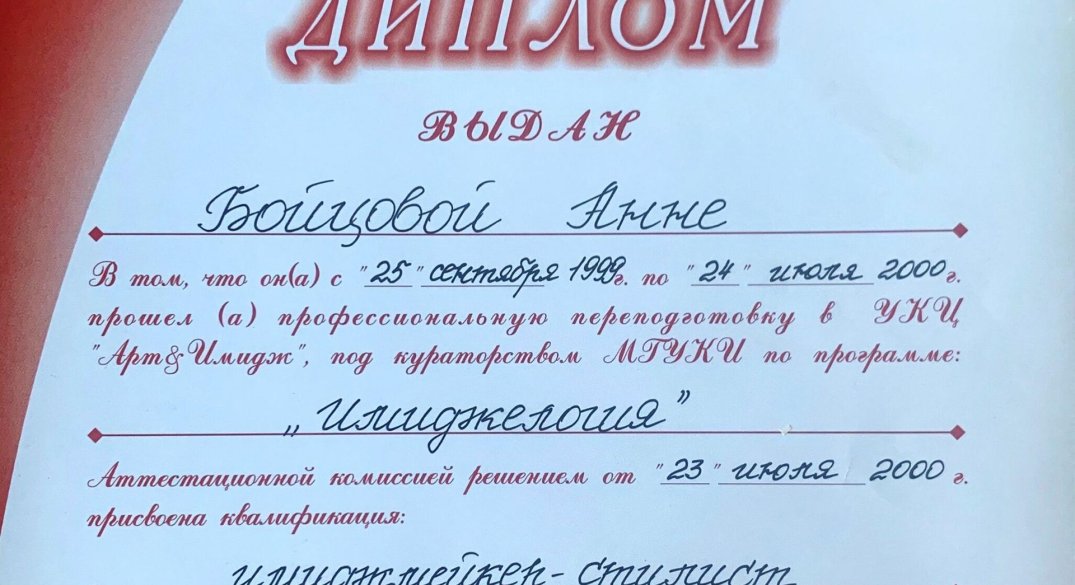 ДИПЛОМ
ВЫДАН
Бойцовой Анне
В том, что он(а) с "25" сентября 1999г. по "24" июля 2000г.
прошел (а) профессиональную переподготовку в УКЦ
"Арт&Имидж", под кураторством МГУКИ по программе:
„Имиджелогия”
Аттестационной комиссией решением от "23" июля 2000 г.
присвоена квалификация:
имиджмейкер-стилист